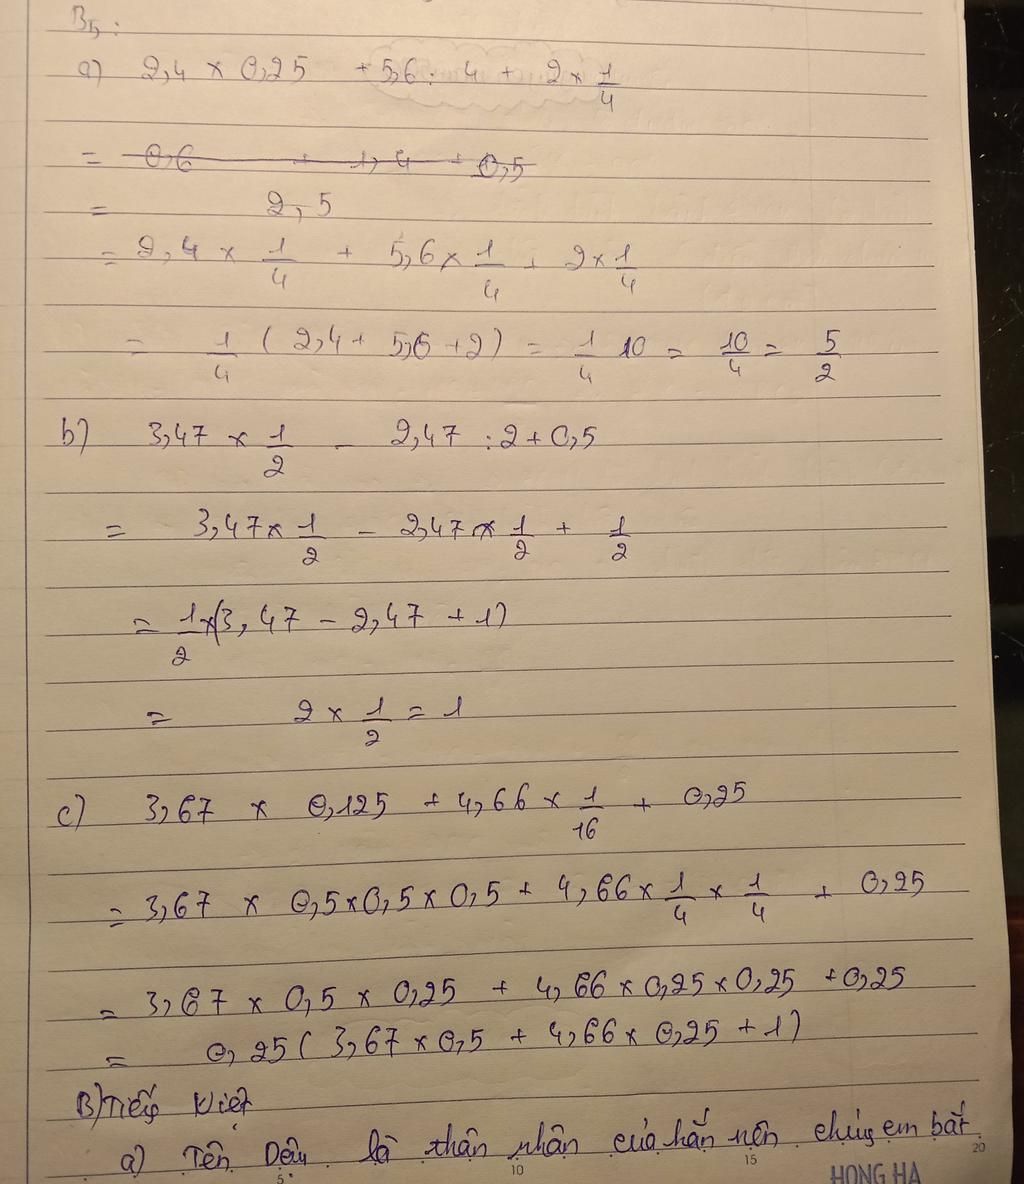 B5:
a) 2,4 × 0,25 + 5,6 : 4 + 2 × 1/4
= 0,6 + 1,4 + 0,5
= 2,5
= 2,4 × 1/4 + 5,6 × 1/4 + 2 × 1/4
= 1/4 ( 2,4 + 5,6 + 2 ) = 1/4 10 = 10/4 = 5/2
b) 3,47 × 1/2 - 2,47 : 2 + 0,5
= 3,47 × 1/2 - 2,47 × 1/2 + 1/2
= 1/2 × (3,47 - 2,47 + 1)
= 2 × 1/2 = 1
c) 3,67 × 0,125 + 4,66 × 1/16 + 0,25
= 3,67 × 0,5 × 0,5 × 0,5 + 4,66 × 1/4 × 1/4 + 0,25
= 3,67 × 0,5 × 0,25 + 4,66 × 0,25 × 0,25 + 0,25
= 0,25 ( 3,67 × 0,5 + 4,66 × 0,25 + 1 )
B) Tiếng Việt
a) Tên Dậu là thân nhân của hắn nên chúng em bắt
5 10 15 20
HONG HA